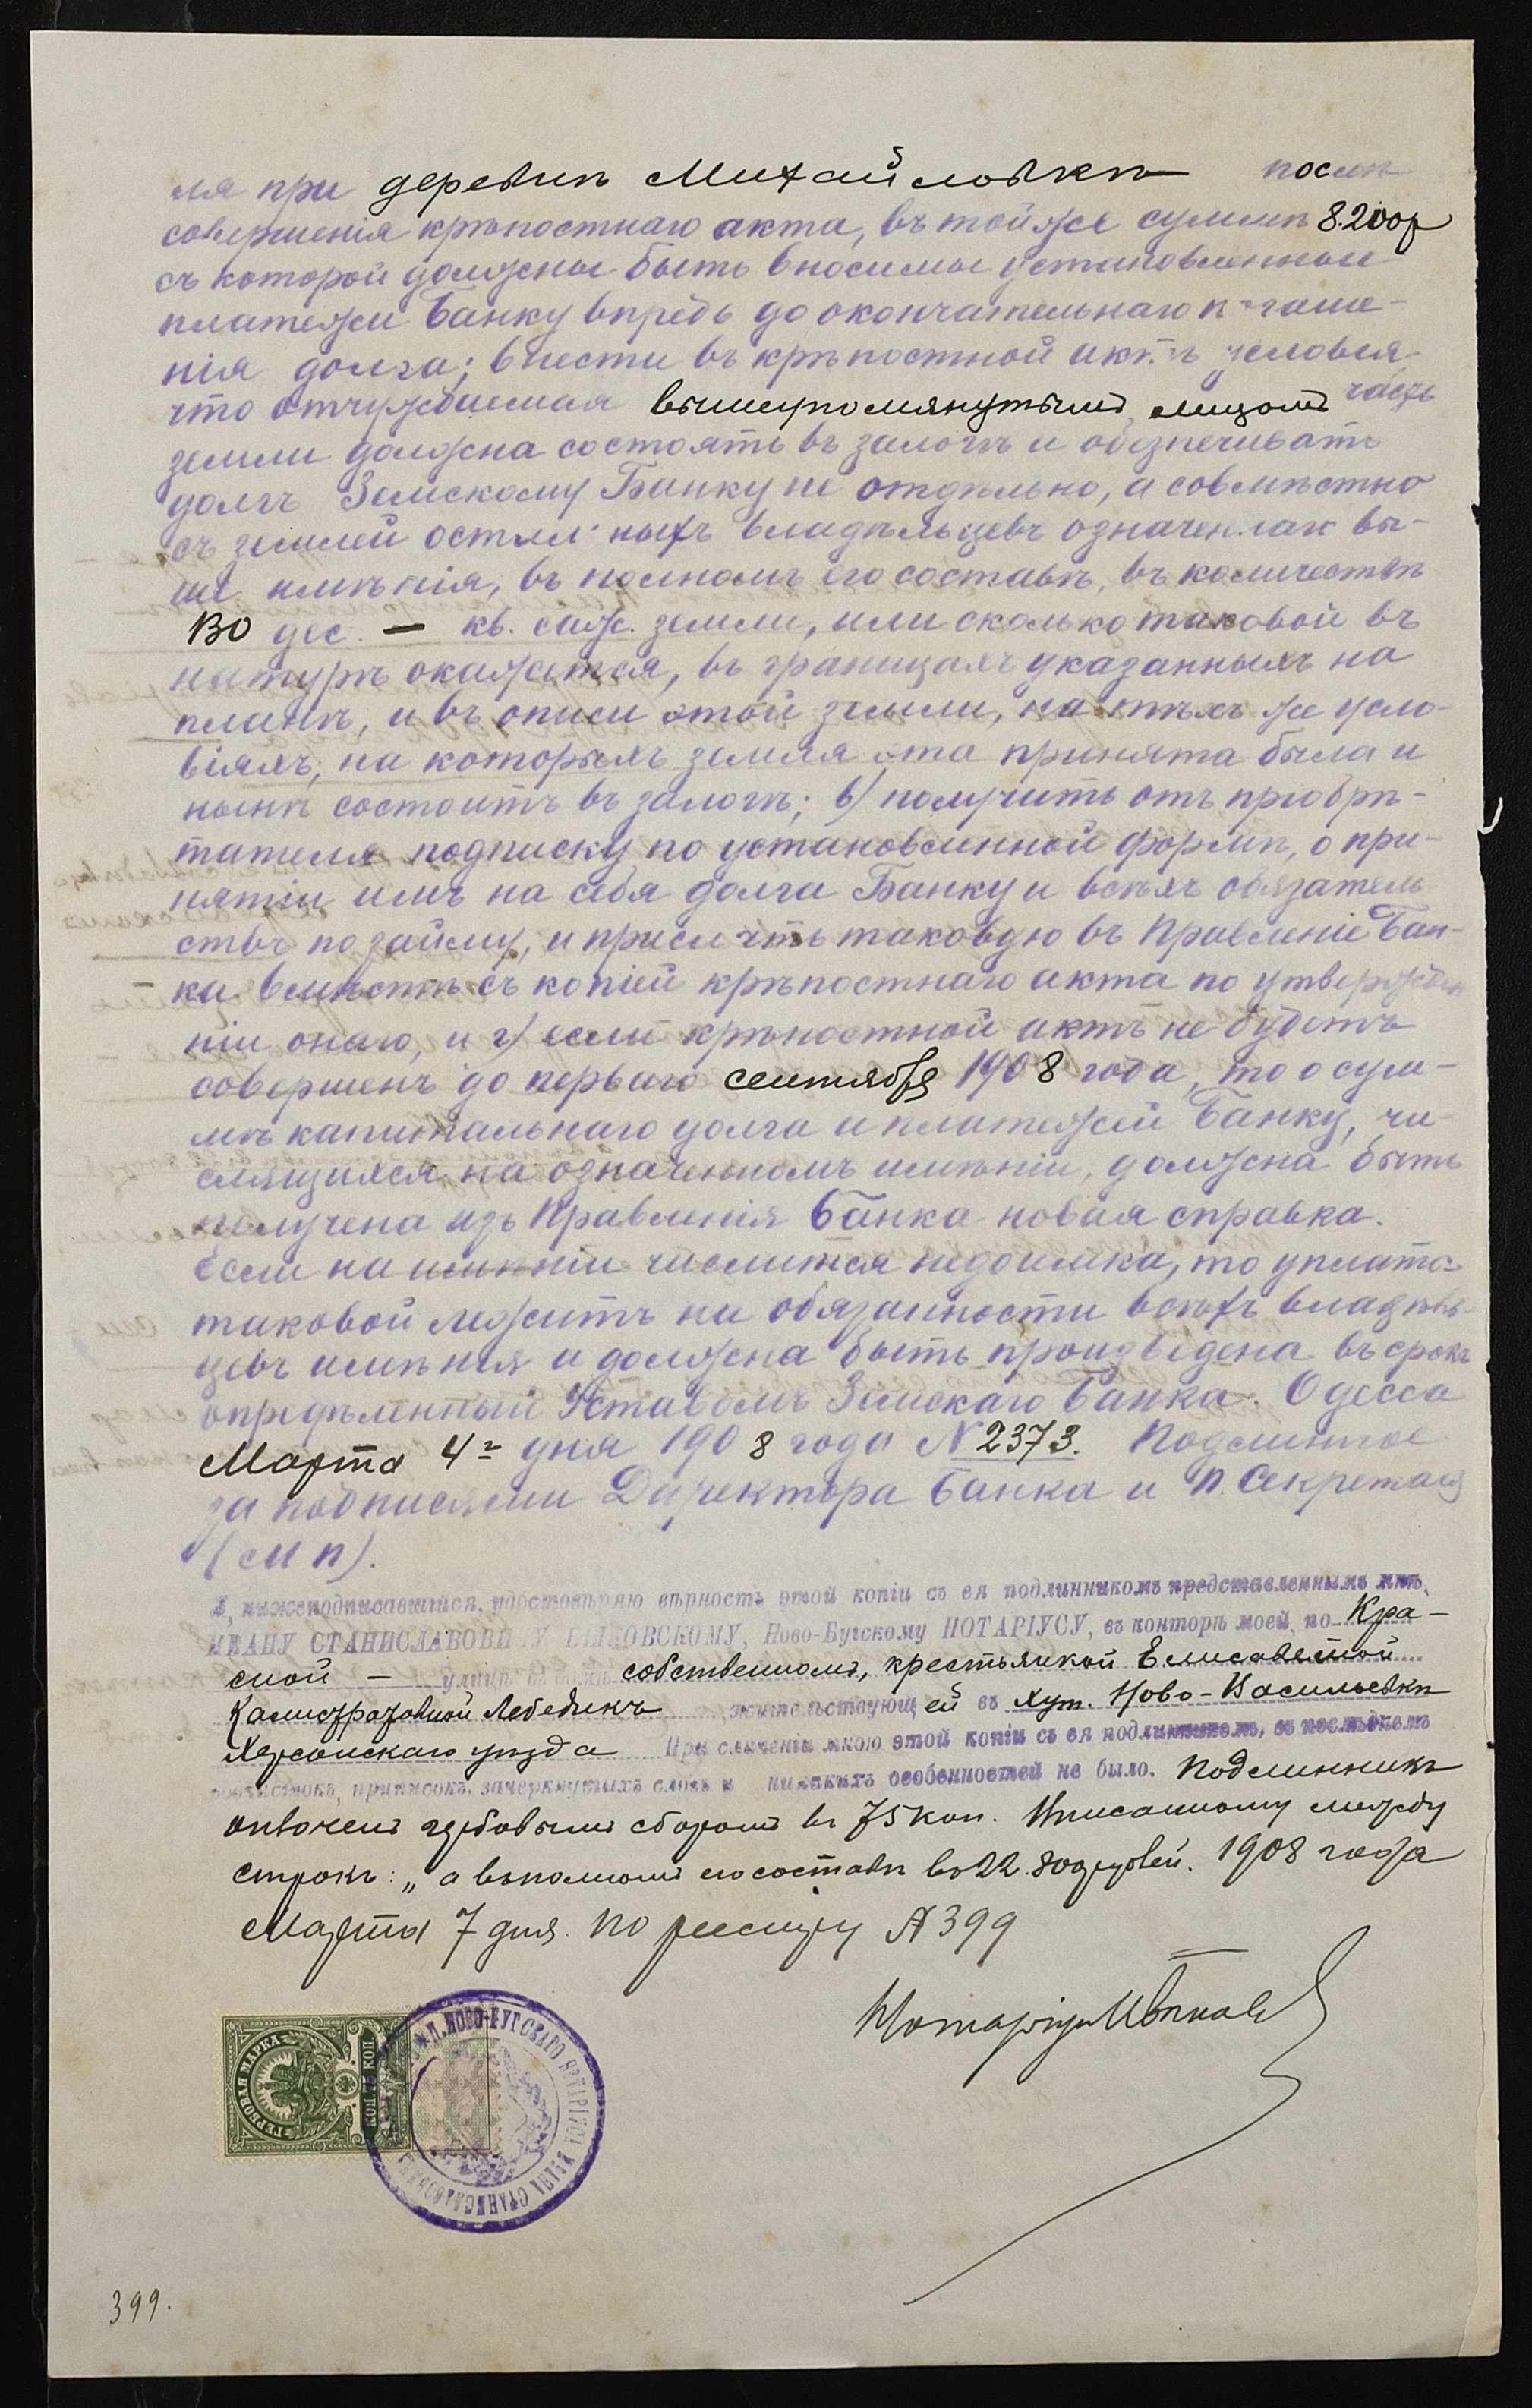 ля при деревнѣ Михайловкѣ послѣ
совершенія крѣпостнаго акта, въ той же суммѣ 8.200 р
съ которой должны быть вносимы установленные
платежи Банку впредь до окончательнаго погаше-
нія долга; внести въ крѣпостной актъ условія
что отчуждаемая вышеупомянутымъ лицомъ часть
земли должна состоять въ залогѣ и обезпечивать
долгъ Земскому Банку не отдѣльно, а совмѣстно
съ землей остальныхъ владѣльцевъ означеннаго вы-
ше имѣнія, въ полномъ его составѣ, въ количествѣ
130 дес. — кв. саж. земли, или сколько таковой въ
натурѣ окажется, въ границахъ указанныхъ на
планѣ, и въ описи этой земли, на тѣхъ же усло-
віяхъ, на которыхъ земля эта принята была и
нынѣ состоитъ въ залогѣ; в) получить отъ пріобрѣ-
тателя подписку по установленной формѣ, о при-
нятіи имъ на себя долга Банку и всѣхъ обязатель
ствъ по займу, и прислать таковую въ Правленіе Бан-
ка вмѣстѣ съ копіей крѣпостнаго акта по утвержде
ніи онаго, и г) если крѣпостной актъ не будетъ
совершенъ до перваго сентября 1908 года, то о сум-
мѣ капитальнаго долга и платежей Банку, чи-
слящихся на означенномъ имѣніи, должна быть
получена изъ Правленія Банка новая справка.
Если на имѣніи числится недоимка, то уплата
таковой лежитъ на обязанности всѣхъ владѣль-
цевъ имѣнія и должна быть произведена въ срокъ
опредѣленный Уставомъ Земскаго Банка. Одесса
Марта 4го дня 1908 года № 2373. Подлинное
за подписями Директора Банка и п. Секретаря
(М П).
Я, нижеподписавшійся, удостовѣряю вѣрность этой копіи съ ея подлинникомъ представленнымъ мнѣ,
ИВАНУ СТАНИСЛАВОВИЧУ Ново-Бугскому НОТАРІУСУ, въ конторѣ моей, по Кра-
сной — улицѣ собственномъ, крестьянкой Елисаветой
Калистратовной Лебединъ жительствующей въ хут. Ново-Васильевкѣ
Херсонскаго уѣзда При сличеніи мною этой копіи съ ея подлинникомъ, въ послѣднемъ
подчистокъ, приписокъ, зачеркнутыхъ словъ и никакихъ особенностей не было. Подлинникъ
оплоченъ гербовымъ сборомъ въ 75 коп. Приписанному между
строкъ: „а въ полномъ его составѣ въ 22.800 рублей. 1908 года
Марта 7 дня. По реестру № 399
Нотаріусъ
ГЕРБОВАЯ МАРКА
75 КОП
НОВО-БУГСКАГО НОТАРІУСА ИВАНА СТАНИСЛАВОВИЧА
399.